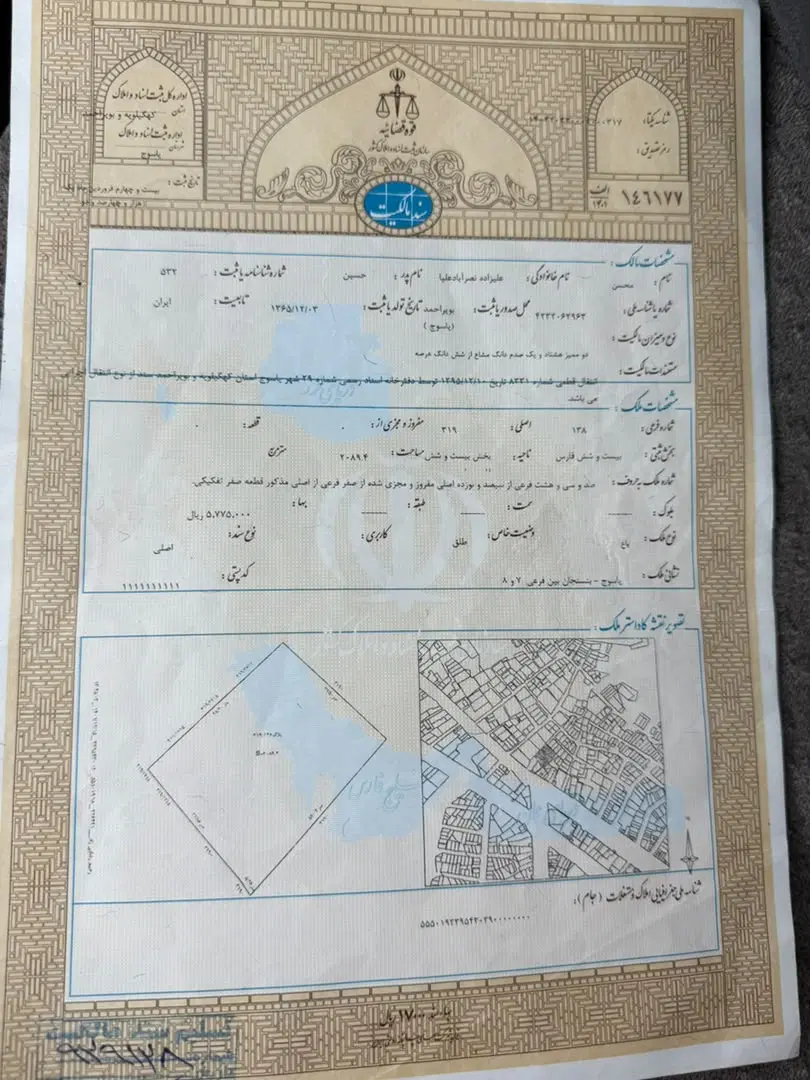 اداره کل ثبت اسناد و املاک
استان کهگیلویه و بویراحمد
اداره ثبت اسناد و املاک
شهرستان یاسوج
تاریخ ثبت : بیست و چهارم فروردین ماه یک
هزار و چهارصد و دو
قوه قضائیه
سازمان ثبت اسناد و املاک کشور
سند مالکیت
شناسه یکتا :
رمز تصدیق :
۱۴۶۱۷۷ الف ۱۴۰۱
مشخصات مالک :
نام : محسن نام خانوادگی : علیزاده نصرآبادعلیا نام پدر : حسین شماره شناسنامه یا ثبت : ۵۳۲
شماره یا شناسه ملی : محل صدور یا ثبت : بویراحمد (یاسوج) تاریخ تولد یا ثبت : ۱۳۶۵/۱۲/۰۳ تابعیت : ایران
نوع و میزان مالکیت : دو ممیز هشتاد و یک صدم دانگ مشاع از شش دانگ عرصه
مستندات مالکیت : انتقال قطعی شماره ۸۳۳۱ تاریخ ۱۳۹۵/۱۲/۱۰ توسط دفترخانه اسناد رسمی شماره ۲۹ شهر یاسوج استان کهگیلویه و بویراحمد سند از نوع انتقال اجرایی
می باشد.
مشخصات ملک :
شماره فرعی : ۱۳۸ اصلی : ۳۱۹ مفروز و مجزی از : ۰ قطعه : ۰
بخش ثبتی : بیست و شش فارس ناحیه : بخش بیست و شش مساحت : ۲۰۸۹.۴ مترمربع
شماره ملک به حروف : صد و سی و هشت فرعی از سیصد و نوزده اصلی مفروز و مجزی شده از صفر فرعی از اصلی مذکور قطعه صفر تفکیکی.
بلوک : ــــــ سمت : ــــــ طبقه : ــــــ بها : ۵,۷۷۵,۰۰۰ ریال
نوع ملک : باغ وضعیت خاص : طلق کاربری : نوع سند : اصلی
نشانی ملک : یاسوج - بنسنجان بین فرعی ۷ و ۸ کد پستی : ۱۱۱۱۱۱۱۱۱۱
تصویر نقشه کاداستر ملک :
خلیج فارس
شناسه ملی جغرافیایی املاک و مستغلات (جام) :